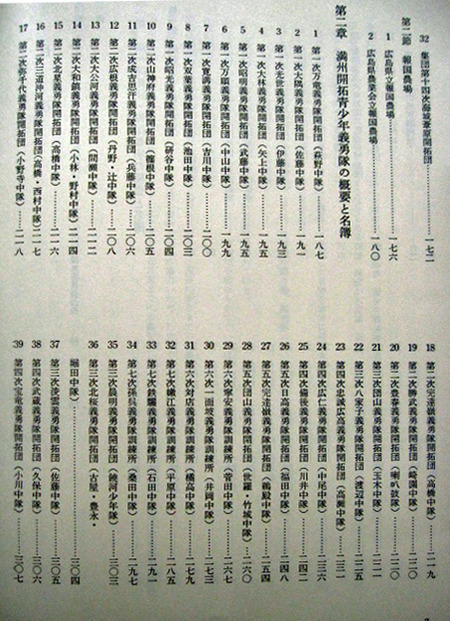 32 集団第十四次海城葦原開拓団……一七二
第二節 報国農場
1 広島県立報国農場……一七六
2 広島県農業会立報国農場……一八〇
第二章 満州開拓青少年義勇隊の概要と名簿
1 第一次万竜義勇隊開拓団(萩野中隊)……一八七
2 第一次大隅義勇隊開拓団(佐藤中隊)……一九一
3 第一次光世義勇隊開拓団(伊藤中隊)……一九三
4 第一次大林義勇隊開拓団(矢上中隊)……一九五
5 第一次昭明義勇隊開拓団(武藤中隊)……一九五
6 第一次万順義勇隊開拓団(中山中隊)……一九九
7 第一次寛満義勇隊開拓団(吉川中隊)……二〇〇
8 第一次双葉義勇隊開拓団(池田中隊)……二〇三
9 第一次昭光義勇隊開拓団(研谷中隊)……二〇四
10 第二次山神府義勇隊開拓団(篠根中隊)……二〇五
11 第二次成吉思汗義勇隊開拓団(兵藤中隊)……二〇六
12 第二次広根義勇隊開拓団(丹野・辻中隊)……二〇八
13 第二次大公河義勇隊開拓団(間瀬中隊)……二一二
14 第二次大和鎮義勇隊開拓団(小林・野村中隊)……二一四
15 第二次北斗義勇隊開拓団(高橋中隊)……二一六
16 第二次三道沖河義勇隊開拓団(高橋・西村中隊)二一七
17 第二次弥千代義勇隊開拓団(小野寺中隊)……二一八
18 第二次完達嶺義勇隊開拓団(高橋中隊)……二一九
19 第二次勝武義勇隊開拓団(崎園中隊)……二二〇
20 第二次豊拳義勇隊開拓団(喇叭鼓隊)……二二〇
21 第三次団山義勇隊開拓団(玉木中隊)……二二一
22 第三次八家子義勇隊開拓団(渡辺中隊)……二二五
23 第四次忠誠広高義勇隊開拓団(高瀬中隊)……二三一
24 第四次広仁義勇隊開拓団(中尾中隊)……二三六
25 第四次備後義勇隊開拓団(川井中隊)……二四四
26 第五次日高義勇隊開拓団(福田中隊)……二四八
27 第五次完達嶺義勇隊開拓団(鵜殿中隊)……二五四
28 第五次団山義勇隊開拓団(世羅・竹城中隊)…二六〇
29 第六次寧安義勇隊訓練所(菅田中隊)……二六七
30 第六次一面坡義勇隊訓練所(井岡中隊)……二七三
31 第六次対店義勇隊訓練所(橘高中隊)……二七九
32 第七次嫩江義勇隊訓練所(中原中隊)……二八五
33 第七次鉄驪義勇隊訓練所(石田中隊)……二九一
34 第七次孫呉義勇隊訓練所(桑田中隊)……二九七
35 第三次晨明義勇隊開拓団(饒河少年隊)……三〇三
36 第三次北桜義勇隊開拓団(古屋・豊永・
堀田中隊)……三〇四
37 第三次浅雲義勇隊開拓団(佐藤中隊)……三〇五
38 第四次武蔵義勇隊開拓団(久保中隊)……三〇六
39 第四次宝竜義勇隊開拓団(小川中隊)……三〇七